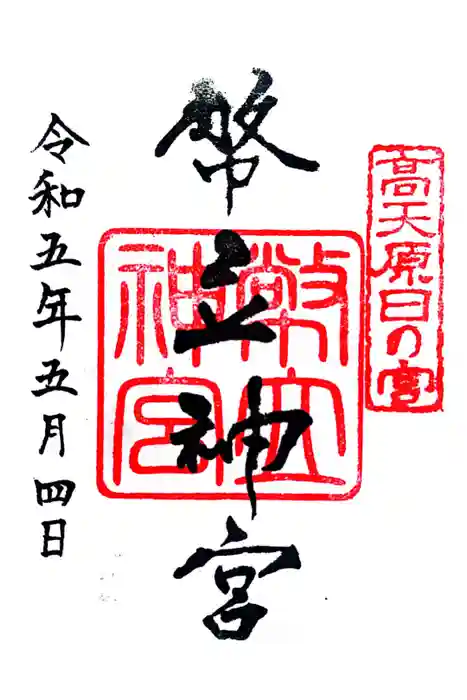 高天原日の宮
幣立神宮
幣立神宮
令和五年五月四日